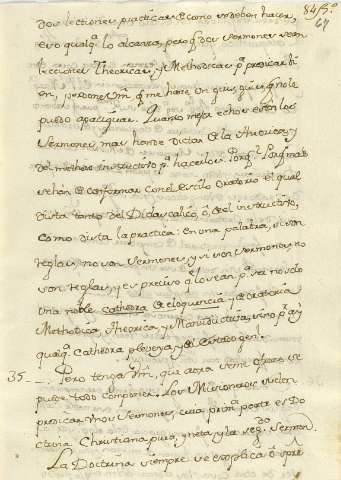 84/5º
67
dos lecciones practicas de como se deben hacer,
eso qualqª lo alcanza, pero qᵉ dos sermones sean
lecciones Theoricas, y Methodicas pª predicar bi
en, perdone Vm qᵉ me hace un quis, quis, qᵉ no le
puedo apaciguar. Quanto mejor echos esten los
sermones, mas han de distar de la theorica, y
del methodo instructivo pª hacerlos. Porqᵉ los sermones
se han de conformar con el estilo oratorio el qual
dista tanto del Didascalico, ó del instructivo,
como dista la practica: en una palabra, si son
reglas, no son sermones, y si son sermones, no
son reglas, y es preciso qᵉ lo sean pª ser no solo
una noble cathedra de eloquencia, y de oratoria
Methodica, Theorica, y Manuductiva, sino pª
qualqª Cathedra plebeya, y de
35 - Pero tenga Vm, que aora se me ofrece se
puede todo componer. Los Misioneros suelen
predicar unos sermones, cuia primª parte es Do
ctrina Christiana pura, y neta, y la segᵈᵃ sermon.
La Doctrina siempre se explica ó